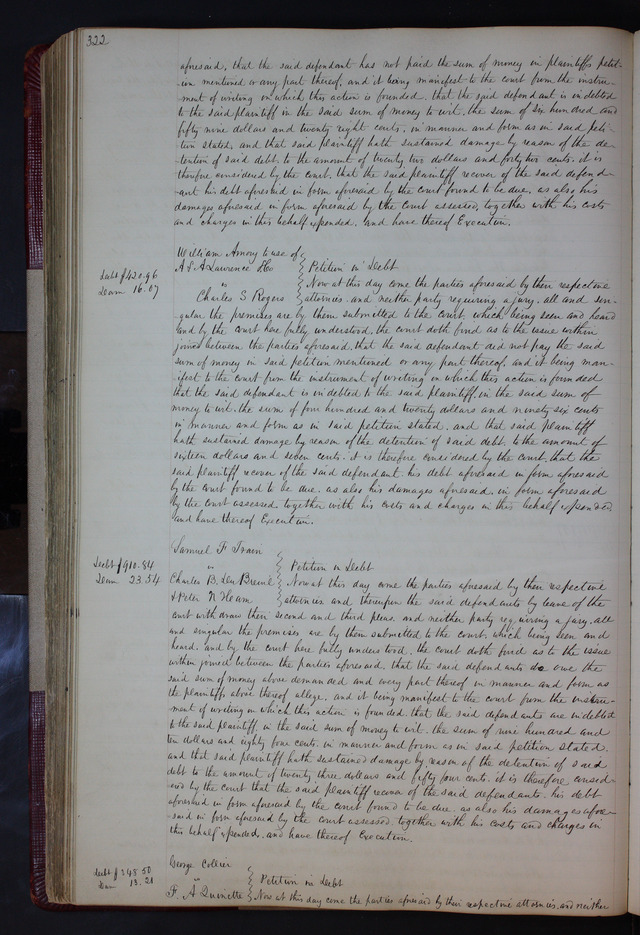 322
aforesaid, that the said defendant has not paid the sum of money in plaintiffs petit-
ion mentioned or any part thereof, and it being manifest to the court from the instru-
ment of writing on which this action is founded, that the said defendant is indebted
to the said plaintiff in the said sum of money to wit, the sum of six hundred and
fifty nine dollars and twenty eight cents, in manner and form as in said peti-
tion stated, and that said plaintiff hath sustained damage by reason of the de-
tention of said debt, to the amount of twenty two dollars and forty two cents. it is
therefore considered by the court, that the said plaintiff recover of the said defend-
ant his debt aforesaid in form aforesaid by the court found to be due, as also his
damages aforesaid in form aforesaid by the court assessed, together with his costs
and charges in this behalf expended, and have thereof Execution.
William Amory to use of
A & A Lawrence & Co } Petition in Debt
Debt $420.96
Dam 16.07
vs } Now at this day come the parties aforesaid by their respective
Charles S Rogers } attornies, and neither party requiring a jury, all and sin-
gular the premises are by them submitted to the court, which being seen and heard
and by the court here fully understood, the court doth find as to the issue within
joined between the parties aforesaid, that the said defendant did not pay the said
sum of money in said petition mentioned or any part thereof, and it being man-
ifest to the court from the instrument of writing on which this action is founded
that the said defendant is indebted to the said plaintiff, in the said sum of
money to wit, the sum of four hundred and twenty dollars and ninety six cents
in manner and form as in said petition stated, and that said Plaintiff
hath sustained damage by reason of the detention of said debt, to the amount of
sixteen dollars and seven cents. it is therefore considered by the court, that the
said plaintiff recover of the said defendant, his debt aforesaid in form aforesaid
by the court found to be due, as also his damages aforesaid, in form aforesaid
by the court assessed, together with his costs and charges in this behalf expended
and have thereof Execution.
Samuel F
Debt $910.84
Dam 23.54
vs } Petition in Debt
Charles B. } Now at this day come the parties aforesaid by their respective
& Peter N Ham } attornies and thereupon the said defendants by leave of the
court withdraw their second and third pleas, and neither party requiring a jury, all
and singular the premises are by them submitted to the court, which being seen and
heard, and by the court here fully understood, the court doth find as to the issue
within joined between the parties aforesaid, that the said defendants do owe the
said sum of money above demanded and every part thereof in manner and form as
the plaintiffs above thereof allege, and it being manifest to the court from the instru-
ment of writing on which this action is founded, that the said defendants are indebted
to the said plaintiff, in the said sum of money to wit, the sum of nine hundred and
ten dollars and eighty four cents, in manner and form as in said petition stated,
and that said plaintiff hath sustained damage by reason of the detention of said
debt to the amount of twenty three dollars and fifty four cents. it is therefore consid-
ered by the court that the said plaintiff recover of the said defendants, his debt
aforesaid in form aforesaid by the court found to be due, as also his damages afore-
said in form aforesaid by the court assessed, together with his costs and charges in
this behalf expended, and have thereof Execution.
George Collier
Debt $348 50
Dam 13.21
vs } Petition in Debt
F. A Quinette } Now at this day come the parties aforesaid by their respective attornies, and neither